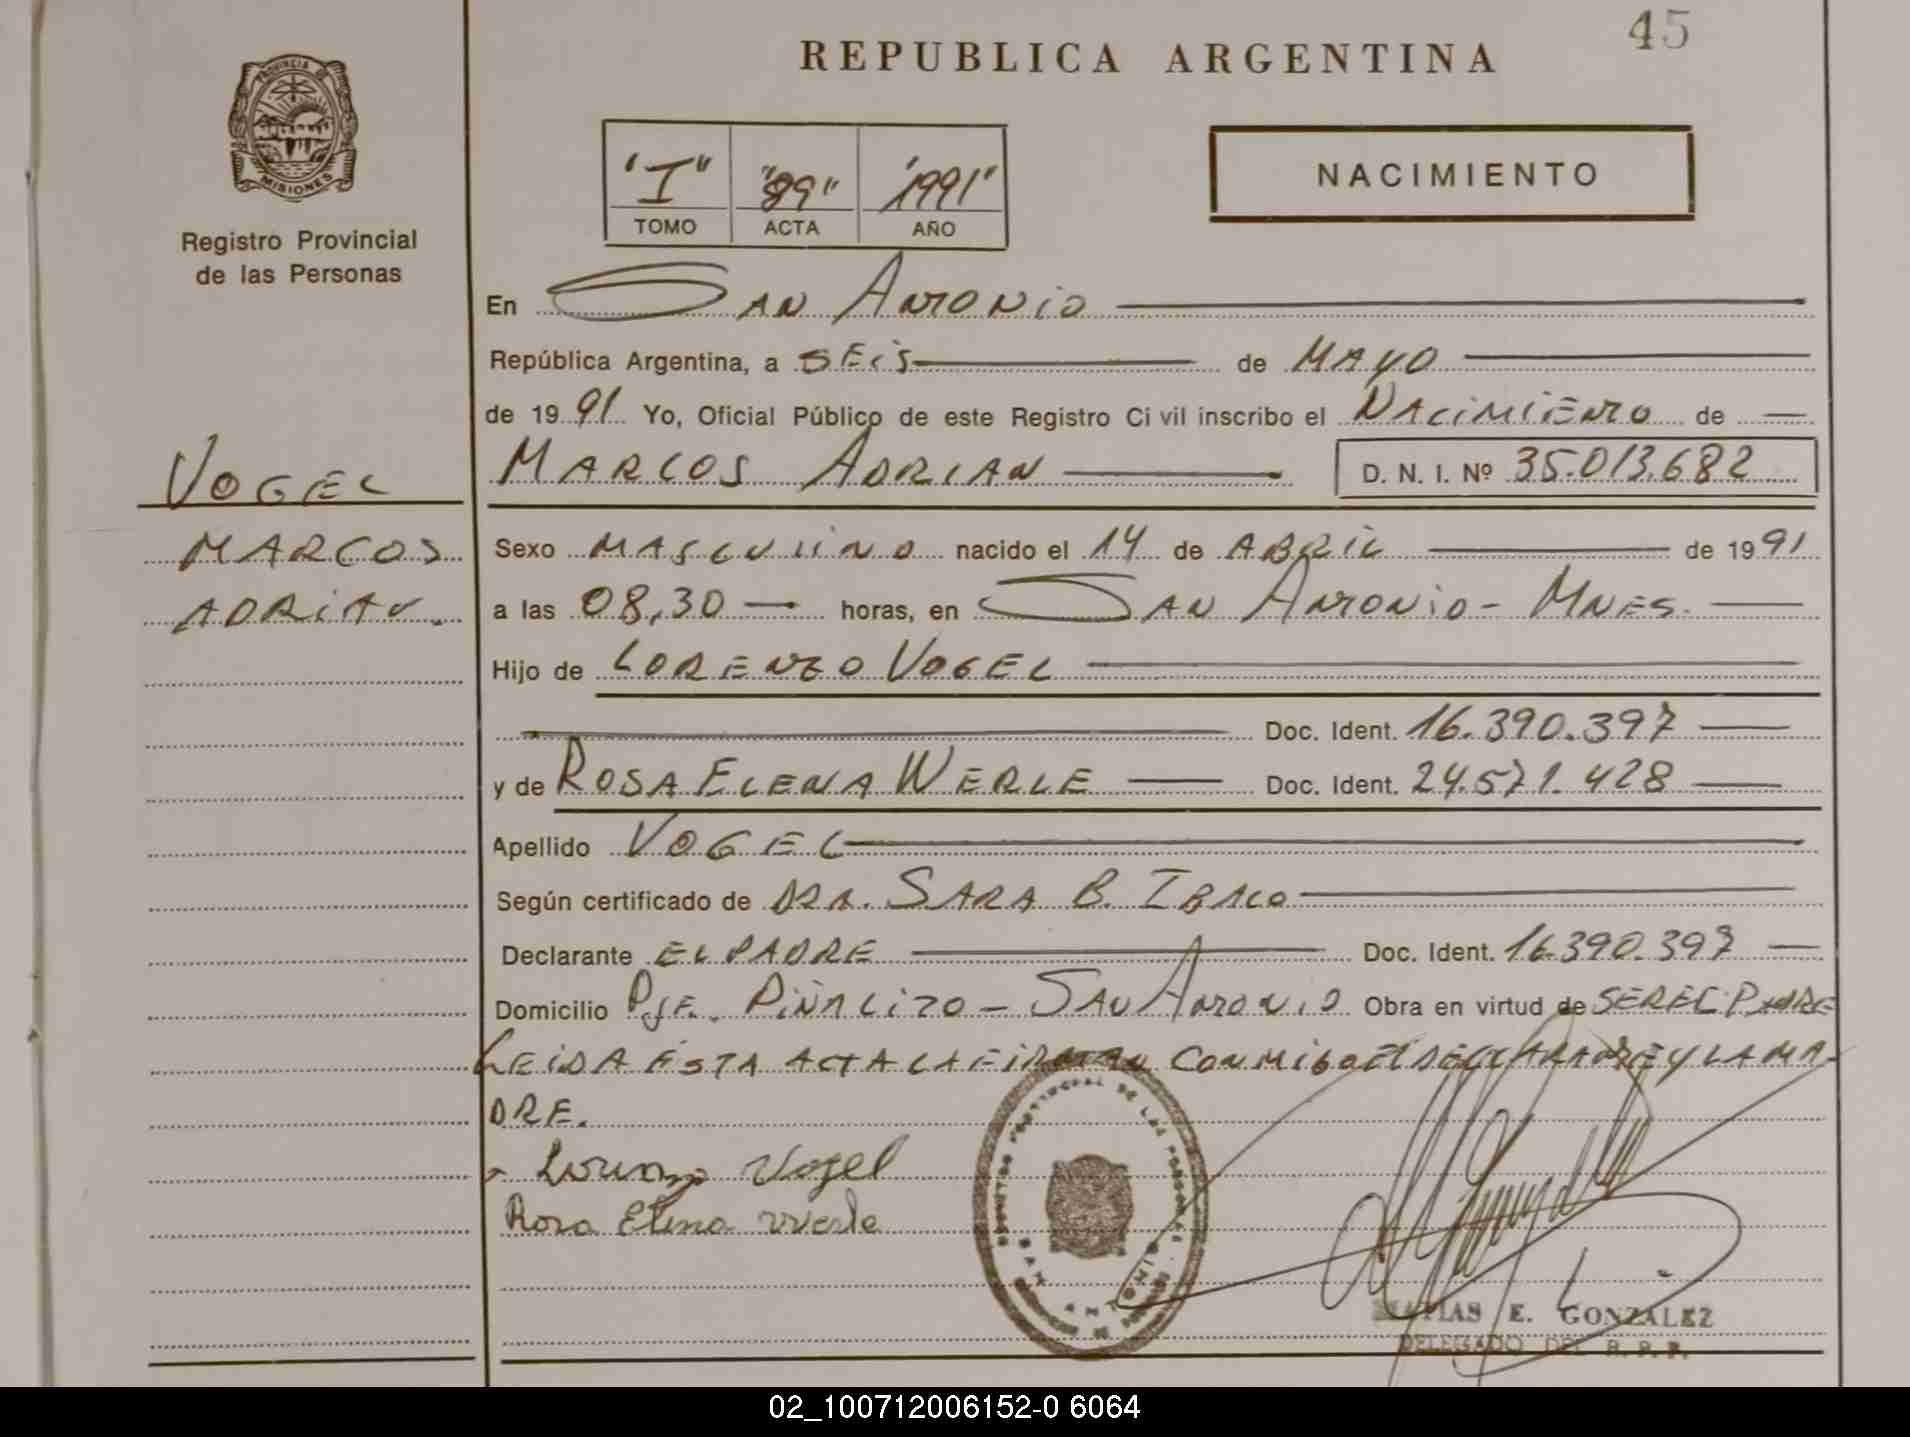 45
REPUBLICA ARGENTINA
PROVINCIA DE
MISIONES
Registro Provincial
de las Personas
"I" "89" "1991"
TOMO ACTA AÑO
NACIMIENTO
En SAN ANTONIO
República Argentina, a SEIS de MAYO
de 1991 Yo, Oficial Público de este Registro Civil inscribo el NACIMIENTO de
MARCOS ADRIAN D. N. I. Nº 35.013.682
VOGEL
MARCOS
ADRIAN.
Sexo MASCULINO nacido el 14 de ABRIL de 1991
a las 08,30 horas, en SAN ANTONIO - MNES.
Hijo de LORENZO VOGEL
Doc. Ident. 16.390.397
y de ROSA ELENA WERLE Doc. Ident. 24.571.428
Apellido VOGEL
Según certificado de DRA. SARA B.
Declarante EL PADRE Doc. Ident. 16.390.397
Domicilio PJE. PIÑALIZO - SAN ANTONIO Obra en virtud de SEREC. PADRE
LEIDA ESTA ACTA LA FIRMAN CONMIGO EL DECLARANTE Y LA MA-
DRE.
Lorenzo Vogel
Rosa Elena Werle
REGISTRO PROVINCIAL DE LAS PERSONAS
SAN ANTONIO
MATIAS E. GONZALEZ
DELEGADO DEL R. P. P.
02_100712006152-0 6064